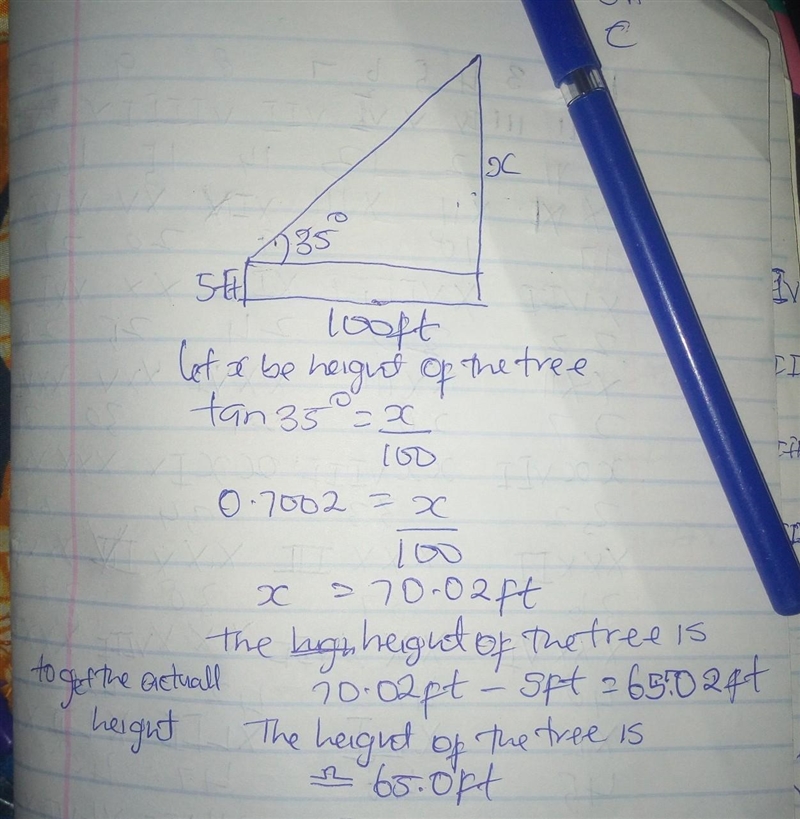 C
x
35°
5ft
100ft
let x be height of the tree
tan 35° = x
100
0.7002 = x
100
x = 70.02ft
The height of the tree is
to get the actuall
70.02ft - 5ft = 65.02ft
height
The height of the tree is
≏ 65.0ft